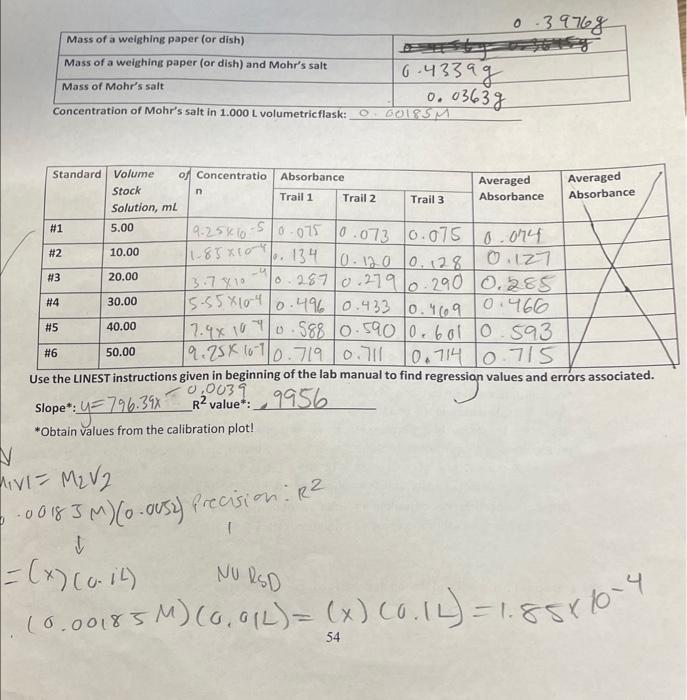 0.3976g
Mass of a weighing paper (or dish)
Mass of a weighing paper (or dish) and Mohr's salt 0.4339g
Mass of Mohr's salt 0.0363g
Concentration of Mohr's salt in 1.000 L volumetric flask: 0.00185M
Standard Volume of Concentratio Absorbance Averaged Averaged
Stock n Trail 1 Trail 2 Trail 3 Absorbance Absorbance
Solution, mL
#1 5.00 9.25x10-5 0.075 0.073 0.075 0.074
#2 10.00 1.85x10-4 0.134 0.120 0.128 0.127
#3 20.00 3.7x10-4 0.287 0.279 0.290 0.285
#4 30.00 5.55x10-4 0.496 0.433 0.469 0.466
#5 40.00 7.4x10-4 0.588 0.590 0.601 0.593
#6 50.00 9.25x10-7 0.719 0.711 0.714 0.715
Use the LINEST instructions given in beginning of the lab manual to find regression values and errors associated.
Slope*: y=796.39x - 0.0039 R2 value*: .9956
*Obtain values from the calibration plot!
M1V1 = M2V2
.00183M)(0.0052) Precision: R2
= (x)(0.1L) NO RSD
(0.00185M)(0.01L) = (x)(0.1L) = 1.85x10-4
54